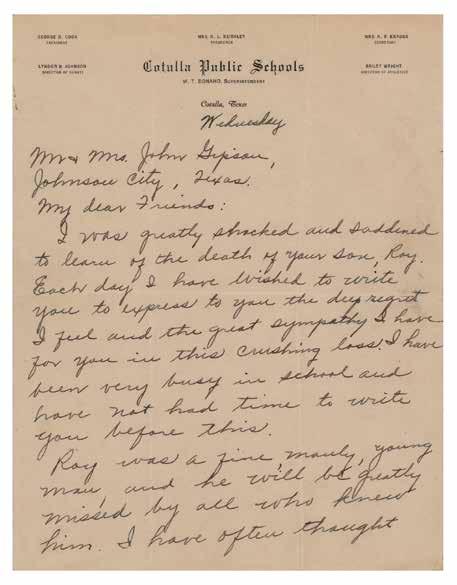 GEORGE B. COOK
PRESIDENT
LYNDON B. JOHNSON
DIRECTOR OF DEBATE
SECRETARY
DIRECTOR OF ATHLETICS
Cotulla Public Schools
W. T. DONAHO, SUPERINTENDENT
Cotulla, Texas
Wednesday
Mr & Mrs. John Gipson,
Johnson City, Texas.
My dear Friends:
I was greatly shocked and saddened
to learn of the death of your son, Roy.
Each day I have wished to write
you to express to you the deep regret
I feel and the great sympathy I have
for you in this crushing loss. I have
been very busy in school and
have not had time to write
you before this.
Roy was a fine manly, young
man, and he will be greatly
missed by all who knew
him. I have often thought